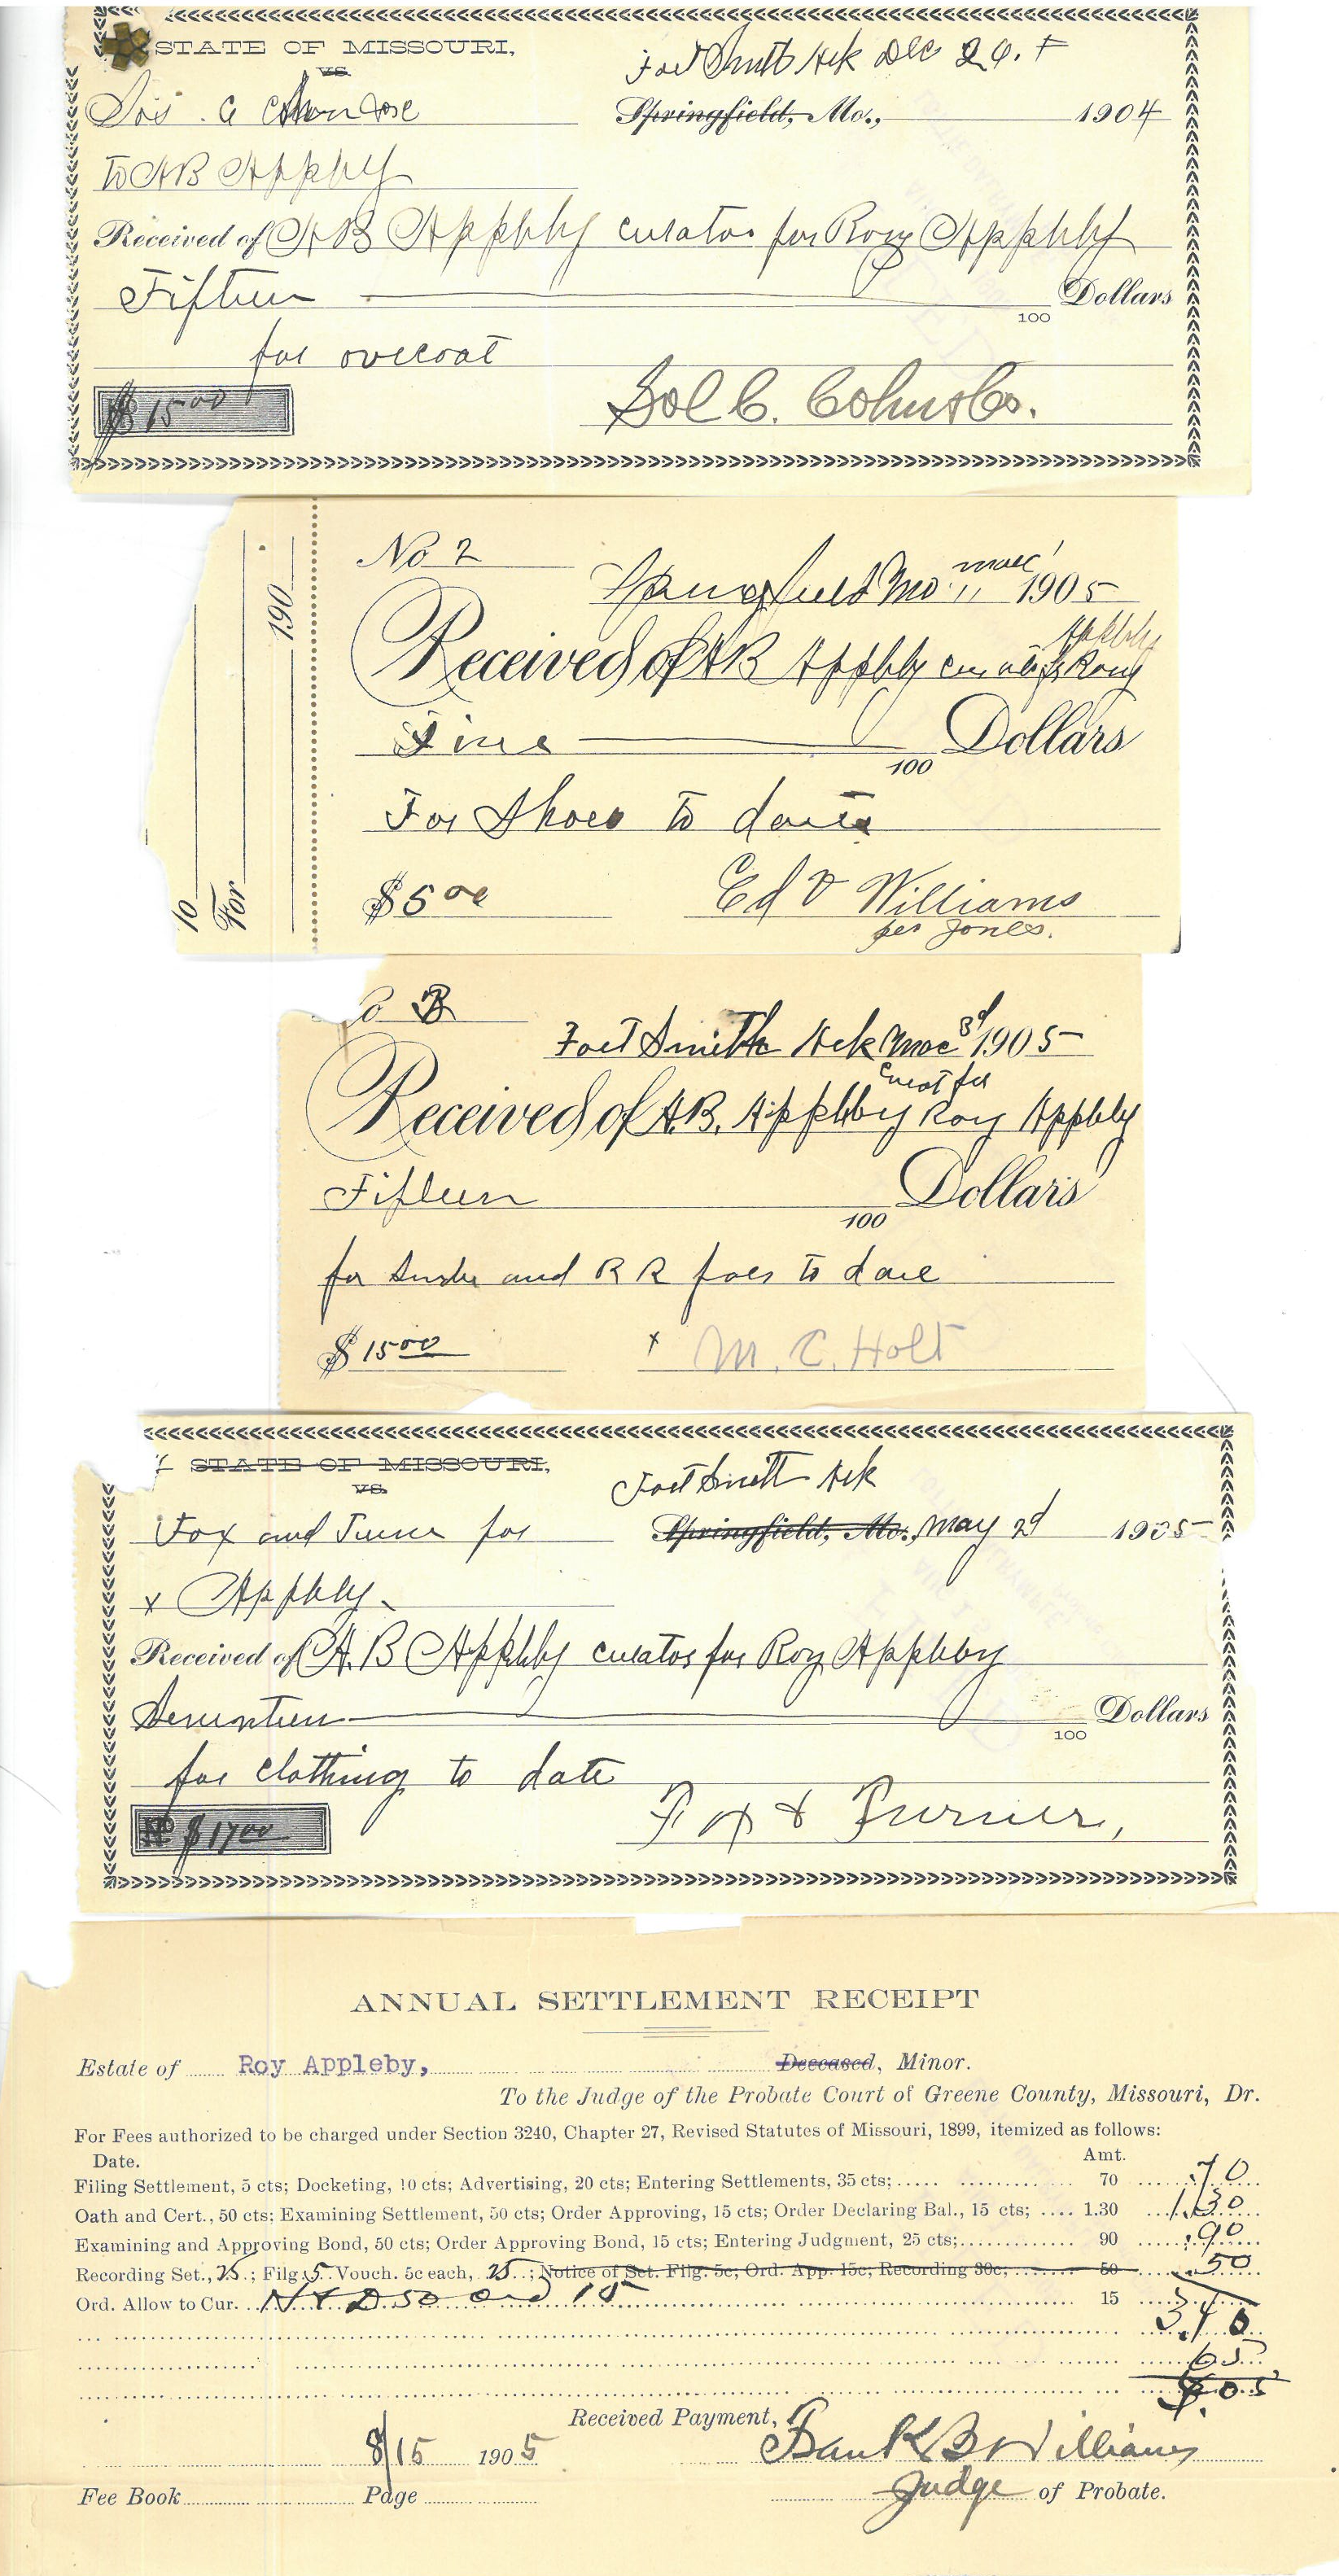 STATE OF MISSOURI,
vs.
Fort Smith Ark Dec 26.
Springfield, Mo., 1904
To AB Appleby
Received of A B Appleby curator for Roy Appleby
Fifteen Dollars
100
for overcoat
$ 15 00
Sol C. Cohn & Co.
No 2
190
Springfield Mo 11 1905
Appleby
Received of AB Appleby Roy
Five Dollars
100
For Shoes To date
$5 00
Ed V Williams
per Jones.
To
For
Fort Smith Ark 3d 1905
Curat for
Received of A.B. Appleby Roy Appleby
Fifteen Dollars
100
for and R R fare to date
$ 15 00
x M. C. Holt
STATE OF MISSOURI,
vs.
Fort Smith Ark
Fox and Turner for
Springfield, Mo., May 2d 1905
x Appleby
Received of A. B Appleby curator for Roy Appleby
Seventeen Dollars
100
for clothing to date
$ 17 00
Fox & Turner,
ANNUAL SETTLEMENT RECEIPT
Estate of Roy Appleby, Deceased, Minor.
To the Judge of the Probate Court of Greene County, Missouri, Dr.
For Fees authorized to be charged under Section 3240, Chapter 27, Revised Statutes of Missouri, 1899, itemized as follows:
Date. Amt.
Filing Settlement, 5 cts; Docketing, 10 cts; Advertising, 20 cts; Entering Settlements, 35 cts; 70 .70
Oath and Cert., 50 cts; Examining Settlement, 50 cts; Order Approving, 15 cts; Order Declaring Bal., 15 cts; 1.30 1.30
Examining and Approving Bond, 50 cts; Order Approving Bond, 15 cts; Entering Judgment, 25 cts; 90 .90
Recording Set., 25; Filg. 5 Vouch. 5c each, 25; Notice of Set. Filg. 5c; Ord. App. 15c; Recording 30c; 50 50
Ord. Allow to Cur. 50 15 15
3.40
65
05
Received Payment,
8/15 1905
Frank B Williams
Judge of Probate.
Fee Book Page